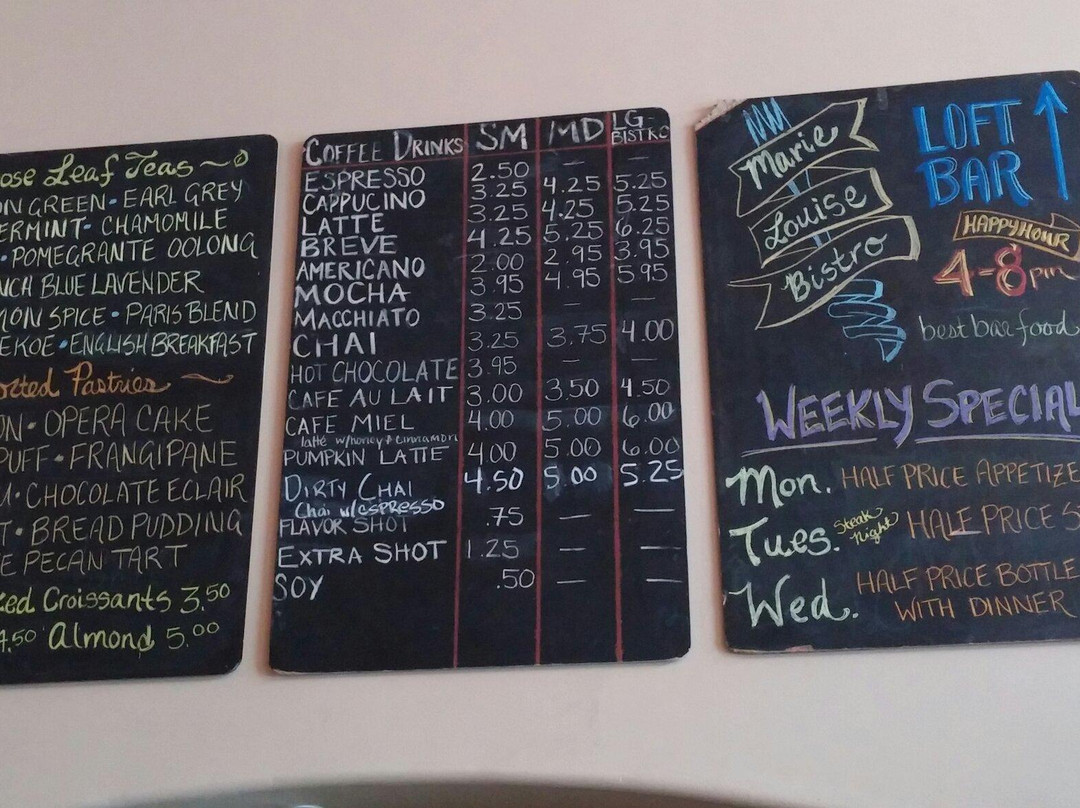 ose Leaf Teas
ON GREEN • EARL GREY
ERMINT • CHAMOMILE
• POMEGRANTE OOLONG
NCH BLUE LAVENDER
MON SPICE • PARIS BLEND
EKOE • ENGLISH BREAKFAST
orted Pastries
ON • OPERA CAKE
PUFF • FRANGIPANE
U • CHOCOLATE ECLAIR
T • BREAD PUDDING
E PECAN TART
ed Croissants 3.50
4.50 Almond 5.00
COFFEE DRINKS SM MD LG-BISTRO
ESPRESSO 2.50 — —
CAPPUCINO 3.25 4.25 5.25
LATTE 3.25 4.25 5.25
BREVE 4.25 5.25 6.25
AMERICANO 2.00 2.95 3.95
MOCHA 3.95 4.95 5.95
MACCHIATO 3.25 — —
CHAI 3.25 3.75 4.00
HOT CHOCOLATE 3.95 — —
CAFE AU LAIT 3.00 3.50 4.50
CAFE MIEL 4.00 5.00 6.00
latte w/honey & cinnamon
PUMPKIN LATTE 4.00 5.00 6.00
DIRTY CHAI 4.50 5.00 5.25
Chai w/ESPRESSO
FLAVOR SHOT .75 — —
EXTRA SHOT 1.25 — —
SOY .50 — —
Marie
Louise
Bistro
LOFT
BAR
HAPPY HOUR
4-8pm
best bar food
WEEKLY SPECIAL
Mon. HALF PRICE APPETIZE
Tues. Steak Night HALF PRICE S
Wed. HALF PRICE BOTTLE
WITH DINNER